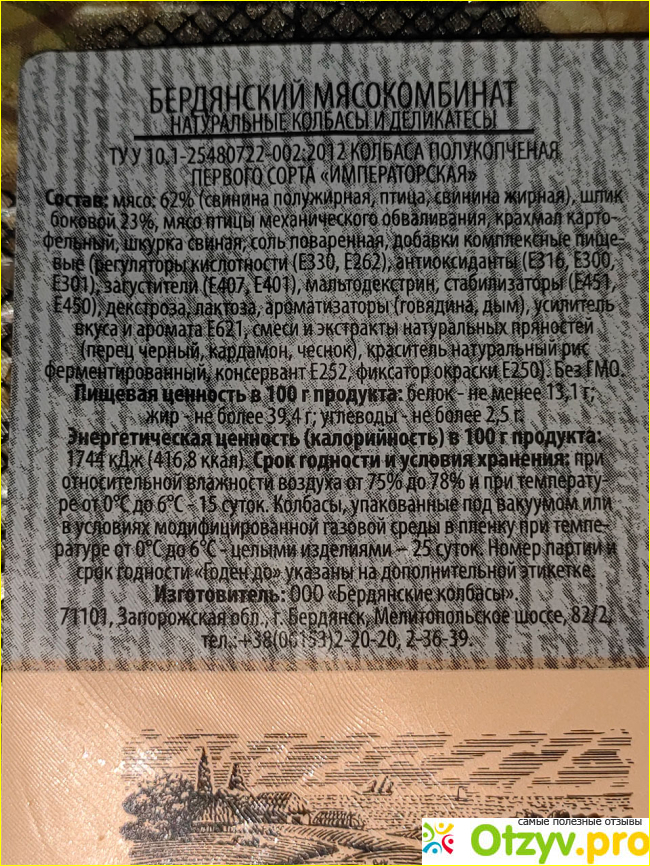 БЕРДЯНСКИЙ МЯСОКОМБИНАТ
НАТУРАЛЬНЫЕ КОЛБАСЫ И ДЕЛИКАТЕСЫ
ТУ У 10.1-25480722-002:2012 КОЛБАСА ПОЛУКОПЧЕНАЯ
ПЕРВОГО СОРТА «ИМПЕРАТОРСКАЯ»
Состав: мясо: 62% (свинина полужирная, птица, свинина жирная), шпик
боковой 23%, мясо птицы механического обваливания, крахмал карто-
фельный, шкурка свиная, соль поваренная, добавки комплексные пище-
вые (регуляторы кислотности (Е330, Е262), антиоксиданты (Е316, Е300,
Е301), загустители (Е407, Е401), мальтодекстрин, стабилизаторы (Е451,
Е450), декстроза, лактоза, ароматизаторы (говядина, дым), усилитель
вкуса и аромата Е621, смеси и экстракты натуральных пряностей
(перец черный, кардамон, чеснок), краситель натуральный рис
ферментированный, консервант Е252, фиксатор окраски Е250). Без ГМО.
Пищевая ценность в 100 г продукта: белок - не менее 13,1 г;
жир - не более 39,4 г; углеводы - не более 2,5 г.
Энергетическая ценность (калорийность) в 100 г продукта:
1744 кДж (416,8 ккал). Срок годности и условия хранения: при
относительной влажности воздуха от 75% до 78% и при температу-
ре от 0°С до 6°С - 15 суток. Колбасы, упакованные под вакуумом или
в условиях модифицированной газовой среды в пленку при темпе-
ратуре от 0°С до 6°С - целыми изделиями – 25 суток. Номер партии и
срок годности «Годен до» указаны на дополнительной этикетке.
Изготовитель: ООО «Бердянские колбасы».
71101, Запорожская обл., г. Бердянск, Мелитопольское шоссе, 82/2,
тел.:+38(06153)2-20-20, 2-36-39.
самые полезные отзывы
Otzyv.pro